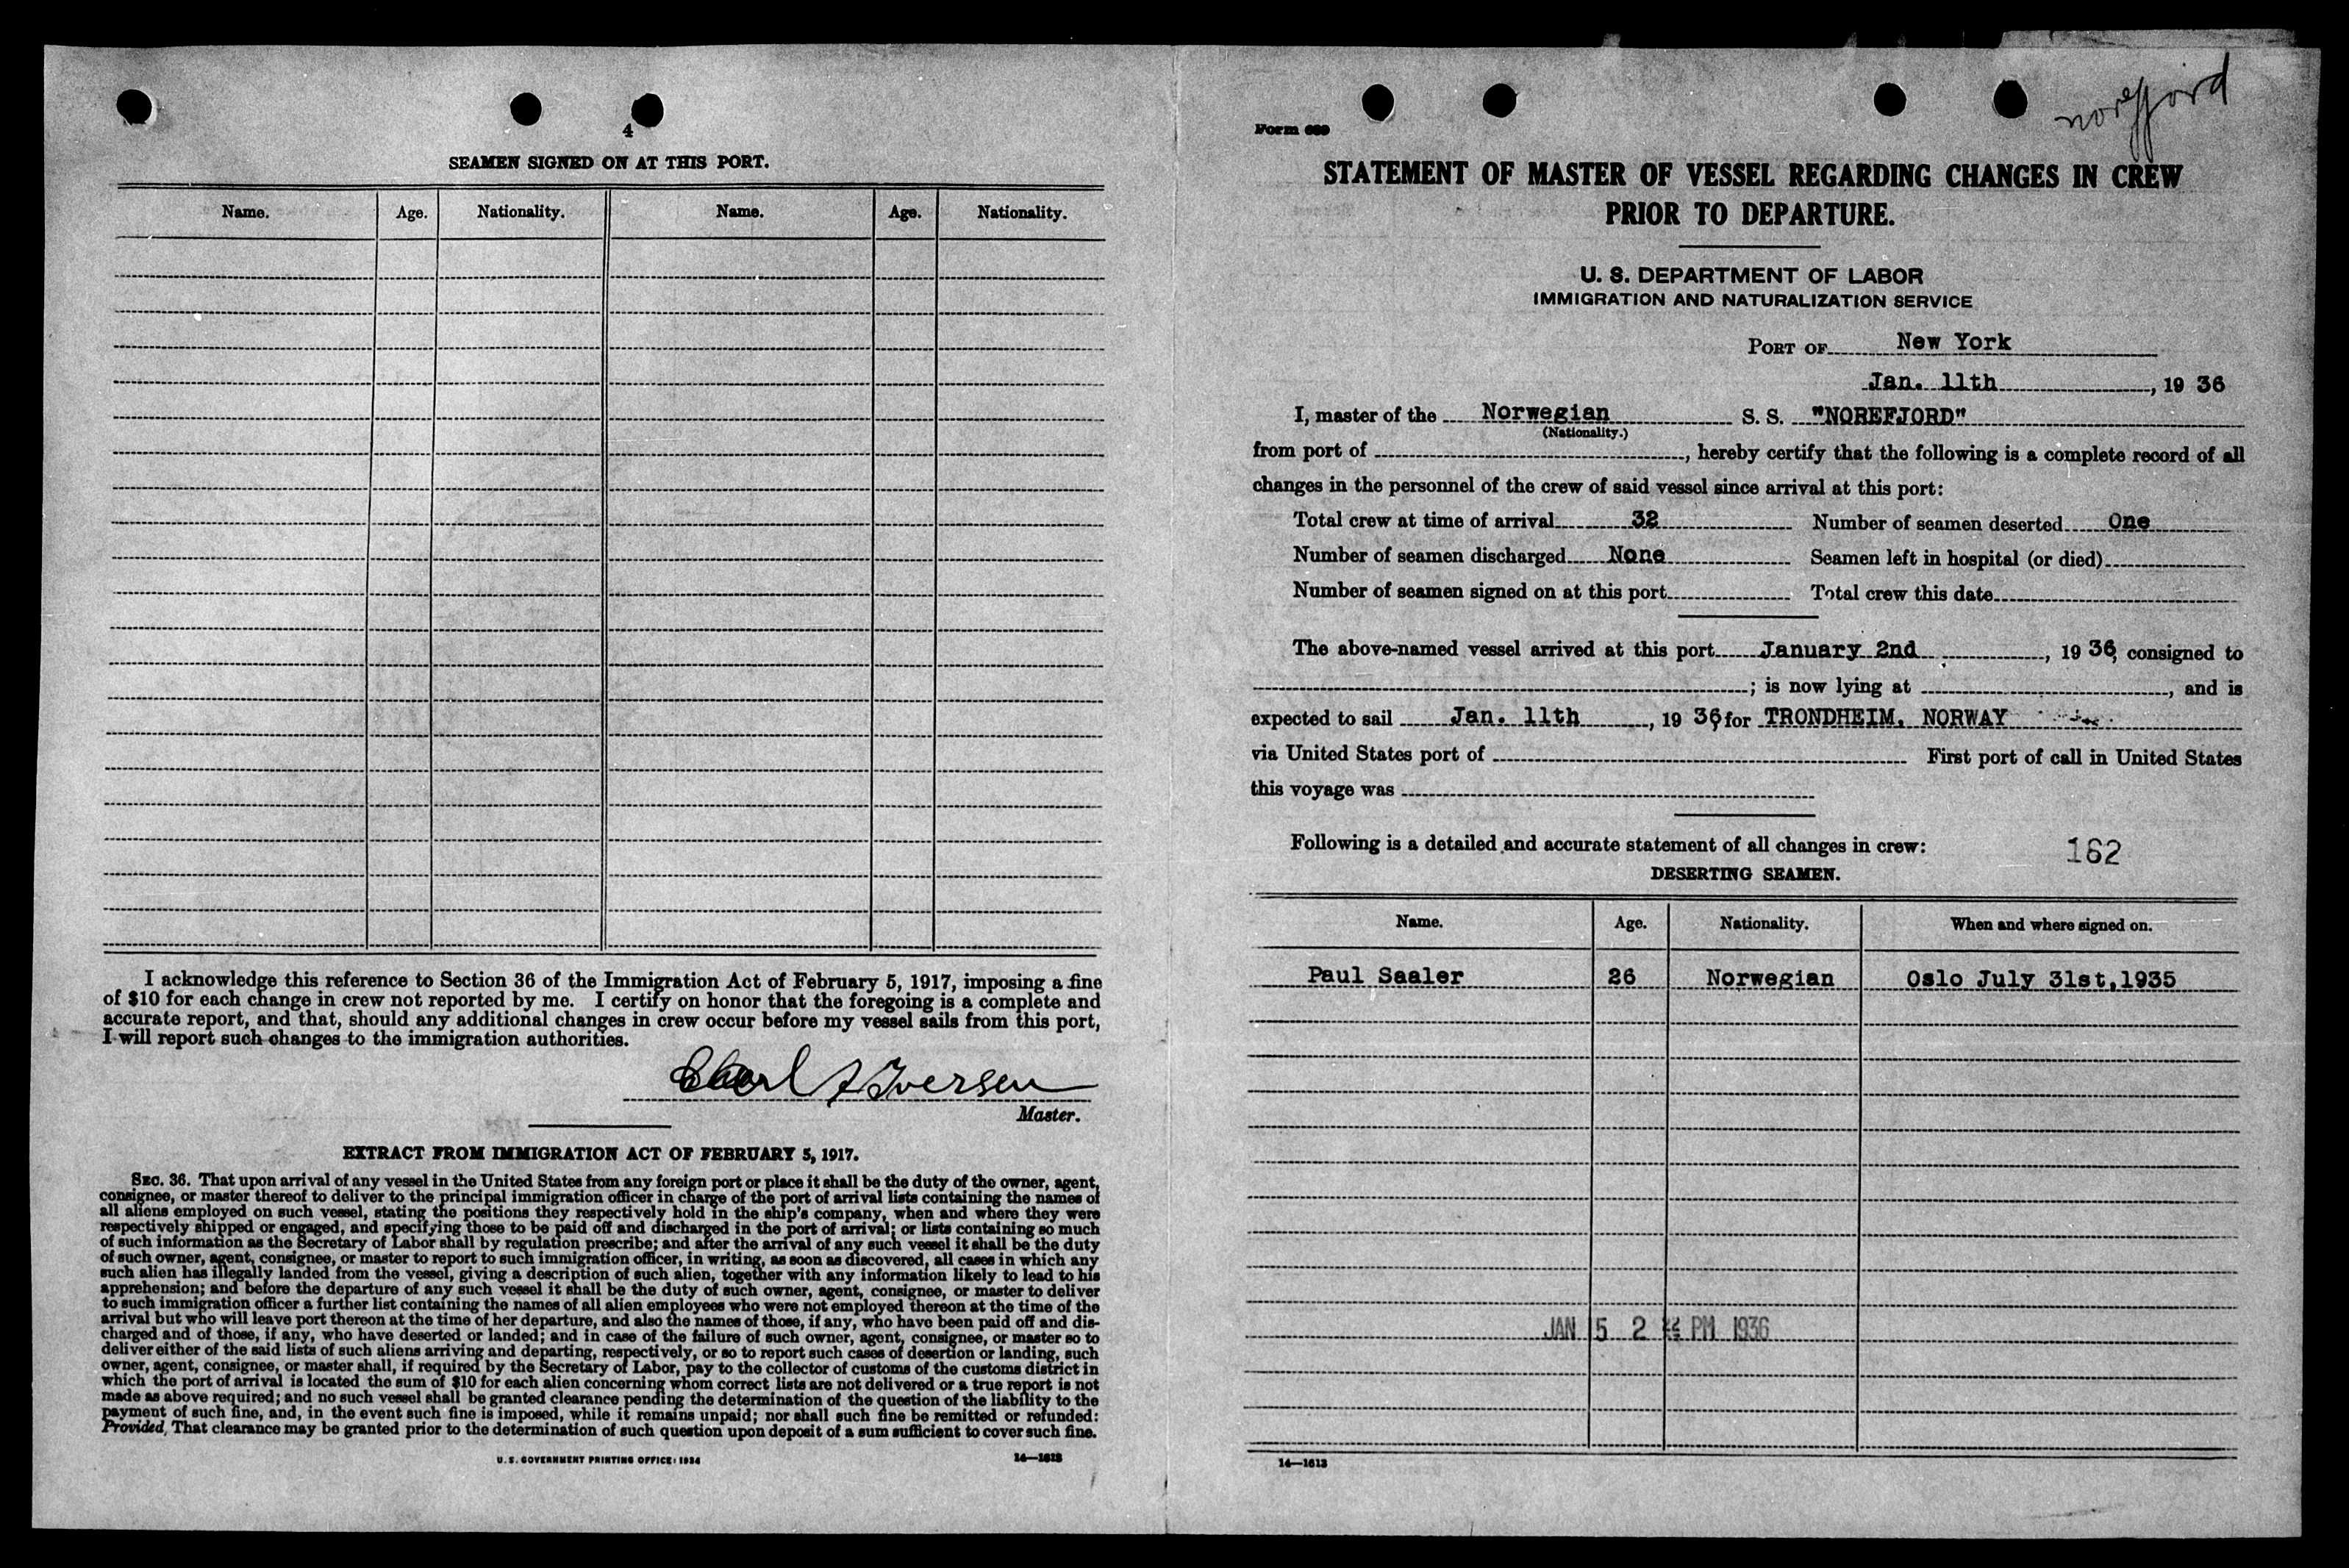 4
SEAMEN SIGNED ON AT THIS PORT.
Name. Age. Nationality. Name. Age. Nationality.
I acknowledge this reference to Section 36 of the Immigration Act of February 5, 1917, imposing a fine
of $10 for each change in crew not reported by me. I certify on honor that the foregoing is a complete and
accurate report, and that, should any additional changes in crew occur before my vessel sails from this port,
I will report such changes to the immigration authorities.
Iversen
Master.
EXTRACT FROM IMMIGRATION ACT OF FEBRUARY 5, 1917.
SEC. 36. That upon arrival of any vessel in the United States from any foreign port or place it shall be the duty of the owner, agent,
consignee, or master thereof to deliver to the principal immigration officer in charge of the port of arrival lists containing the names of
all aliens employed on such vessel, stating the positions they respectively hold in the ship's company, when and where they were
respectively shipped or engaged, and specifying those to be paid off and discharged in the port of arrival; or lists containing so much
of such information as the Secretary of Labor shall by regulation prescribe; and after the arrival of any such vessel it shall be the duty
of such owner, agent, consignee, or master to report to such immigration officer, in writing, as soon as discovered, all cases in which any
such alien has illegally landed from the vessel, giving a description of such alien, together with any information likely to lead to his
apprehension; and before the departure of any such vessel it shall be the duty of such owner, agent, consignee, or master to deliver
to such immigration officer a further list containing the names of all alien employees who were not employed thereon at the time of the
arrival but who will leave port thereon at the time of her departure, and also the names of those, if any, who have been paid off and dis-
charged and of those, if any, who have deserted or landed; and in case of the failure of such owner, agent, consignee, or master so to
deliver either of the said lists of such aliens arriving and departing, respectively, or so to report such cases of desertion or landing, such
owner, agent, consignee, or master shall, if required by the Secretary of Labor, pay to the collector of customs of the customs district in
which the port of arrival is located the sum of $10 for each alien concerning whom correct lists are not delivered or a true report is not
made as above required; and no such vessel shall be granted clearance pending the determination of the question of the liability to the
payment of such fine, and, in the event such fine is imposed, while it remains unpaid; nor shall such fine be remitted or refunded:
Provided, That clearance may be granted prior to the determination of such question upon deposit of a sum sufficient to cover such fine.
U. S. GOVERNMENT PRINTING OFFICE: 1934 14—1613
norefjord
Form 689
STATEMENT OF MASTER OF VESSEL REGARDING CHANGES IN CREW
PRIOR TO DEPARTURE.
U. S. DEPARTMENT OF LABOR
IMMIGRATION AND NATURALIZATION SERVICE
PORT OF New York
Jan. 11th, 19 36
I, master of the Norwegian S. S. "NOREFJORD"
(Nationality.)
from port of , hereby certify that the following is a complete record of all
changes in the personnel of the crew of said vessel since arrival at this port:
Total crew at time of arrival 32 Number of seamen deserted One
Number of seamen discharged None Seamen left in hospital (or died)
Number of seamen signed on at this port Total crew this date
The above-named vessel arrived at this port January 2nd, 19 36, consigned to
; is now lying at , and is
expected to sail Jan. 11th, 19 36, for TRONDHEIM, NORWAY
via United States port of First port of call in United States
this voyage was
Following is a detailed and accurate statement of all changes in crew: 162
DESERTING SEAMEN.
Name. Age. Nationality. When and where signed on.
Paul Saaler 26 Norwegian Oslo July 31st,1935
JAN 5 2 PM 1936
14—1613